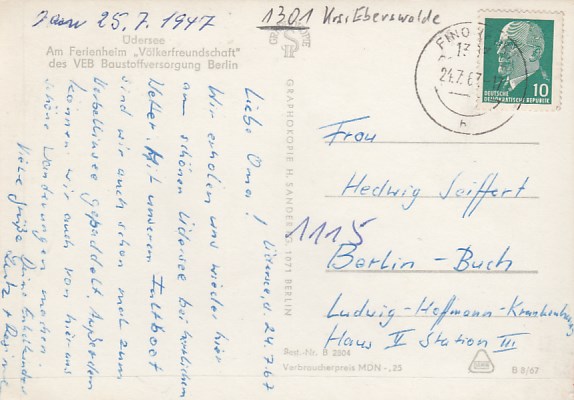 25.7.1947
1301 Krs. Eberswalde
Üdersee
Am Ferienheim „Völkerfreundschaft"
des VEB Baustoffversorgung Berlin
Üdersee, d. 24.7.67
Liebe Oma!
Wir erholen uns wieder hier
am schönen Üdersee bei herrlichem
Wetter. Mit unserem Faltboot
sind wir auch schon mal zum
Werbellinsee gepaddelt. Außerdem
können wir auch von hier aus
schöne Wanderungen machen.
Viele Grüße Deine Enkelkinder
GRAPHOKOPIE H. SANDER KG, 1071 BERLIN
FINO
24.7.67
h
10
DEUTSCHE
DEMOKRATISCHE REPUBLIK
Frau
Hedwig Seiffert
1115
Berlin - Buch
Ludwig-Hoffmann-Krankenhaus
Haus II Station III
Best.-Nr. B 2804
Verbraucherpreis MDN -,25
B 8/67